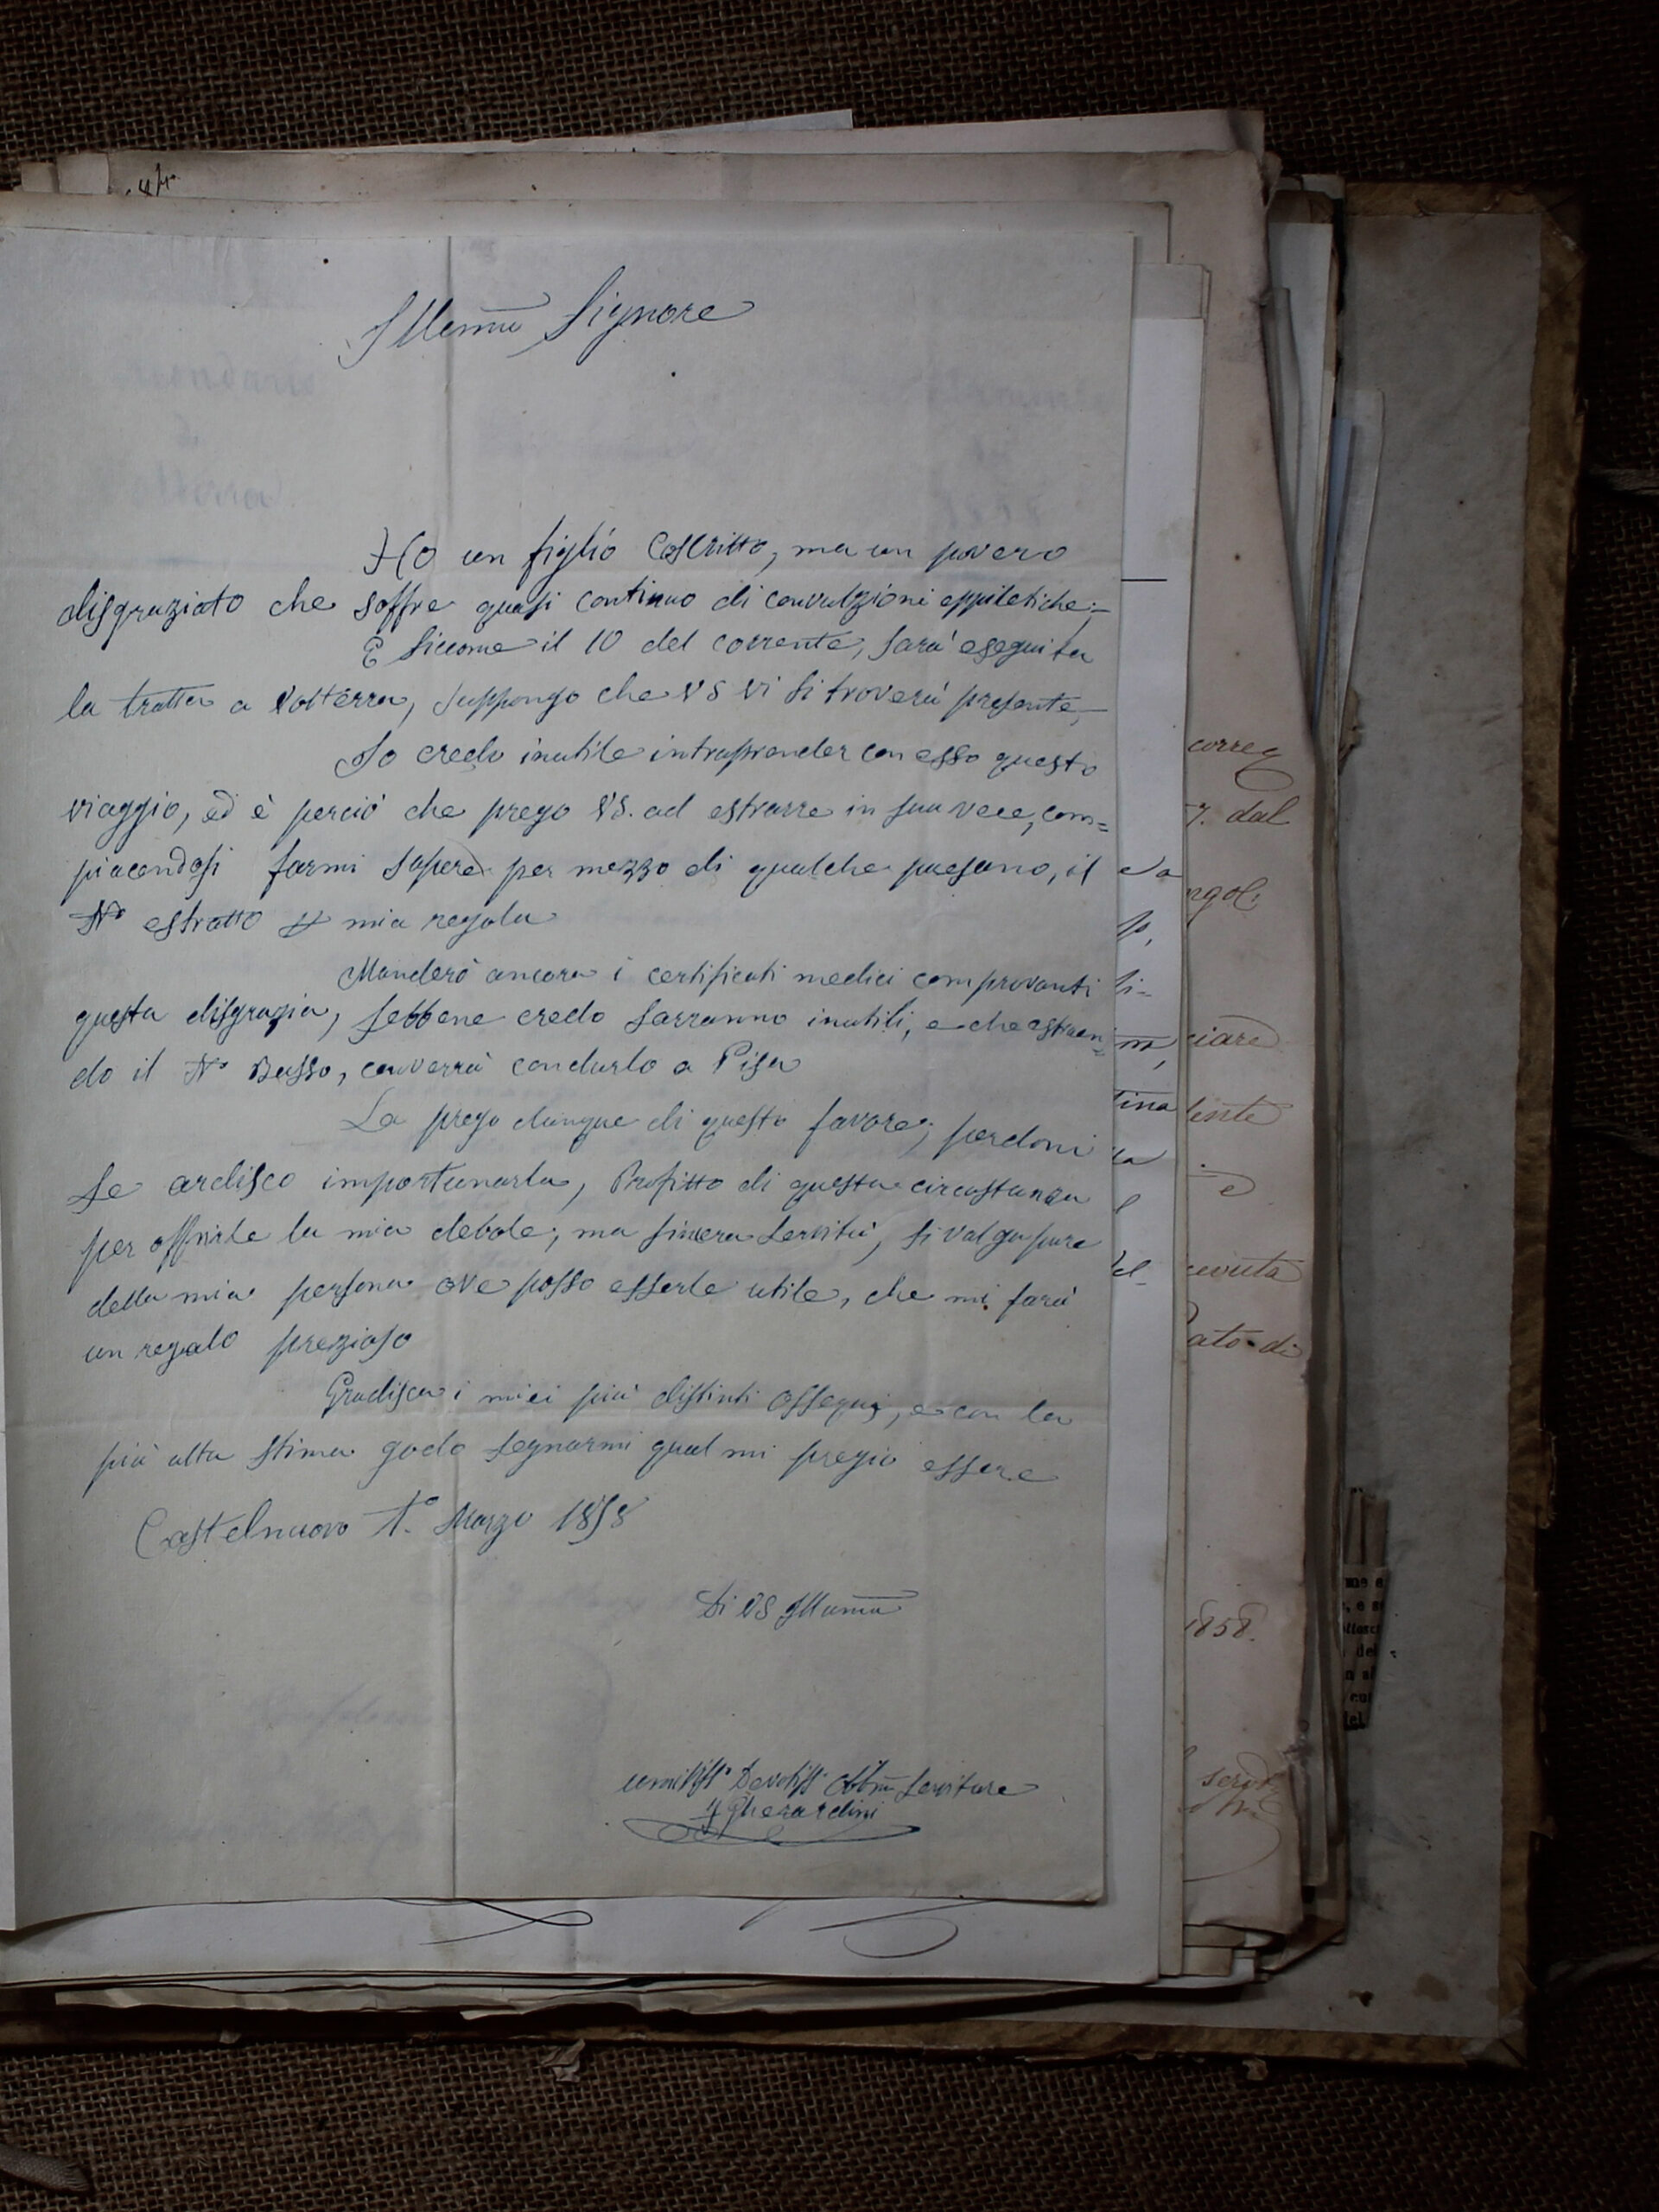 Illmo Signore
Ho un figlio Coscritto, ma un povero
disgraziato che soffre quasi continuo di convulzioni eppiletiche;
E siccome il 10 del corrente, sarà eseguita
la tratta a Volterra, suppongo che VS vi si troverà presente,
Io credo inutile intraprender con esso questo
viaggio, ed è perciò che prego VS. ad estrarre in sua vece, com=
piacendosi farmi sapere per mezzo di qualche paesano, il
No estratto p mia regola
Manderò ancora i certificati medici comprovanti
questa disgrazia, sebbene credo sarranno inutili, e che estraen=
do il No Basso, converrà condurlo a Pisa
La prego dunque di questo favore; perdoni
se ardisco importunarla, Profitto di questa circostanza
per offrirle la mia debole; ma sincera servitù, si valga pure
della mia persona ove posso esserle utile, che mi farà
un regalo prezioso
Gradisca i miei più distinti ossequi, e con la
più alta stima godo segnarmi qual mi pregio essere
Castelnuovo 1.o Marzo 1858
Di VS Illuma
umiliss Devotiss Obbmo Servitore
Gherardini
correg
7. dal
ngoli
ciare
tina
ente
e
evuta
ato di
1858.